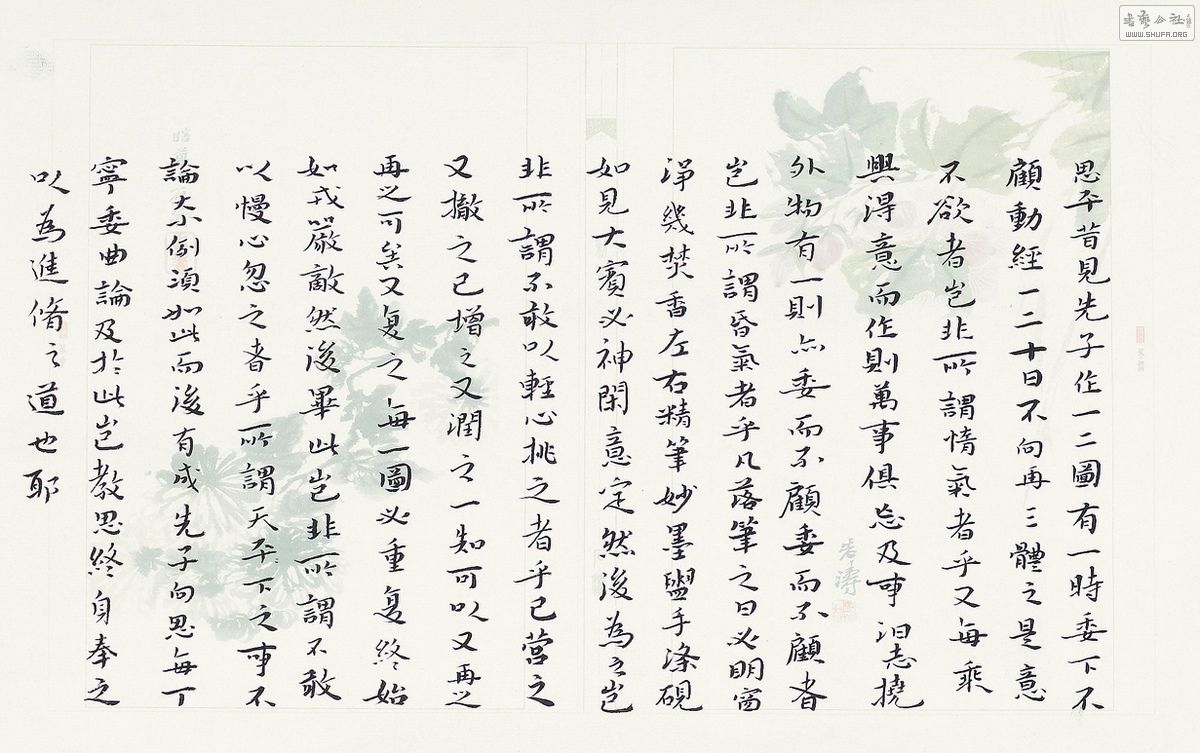 思平昔見先子作一二圖有一時委下不
顧動經一二十日不向再三體之是意
不欲者豈非所謂惰氣者乎又每乘
興得意而作則萬事俱忘及事汩志撓
外物有一則亦委而不顧委而不顧者
豈非所謂昏氣者乎凡落筆之日必明窗
淨幾焚香左右精筆妙墨盥手滌硯
如見大賓必神閑意定然後為之豈
非所謂不敢以輕心挑之者乎已營之
又撤之已增之又潤之一知可以又再之
再之可矣又復之每一圖必重復終始
如戎嚴敵然後畢此豈非所謂不敢
以慢心忽之者乎所謂天平下之事不
論大小例須如此而後有成先子向思每丁
寧委曲論及於此豈教思終身奉之
以為進脩之道也耶
書藝公社
WWW.SHUFA.ORG